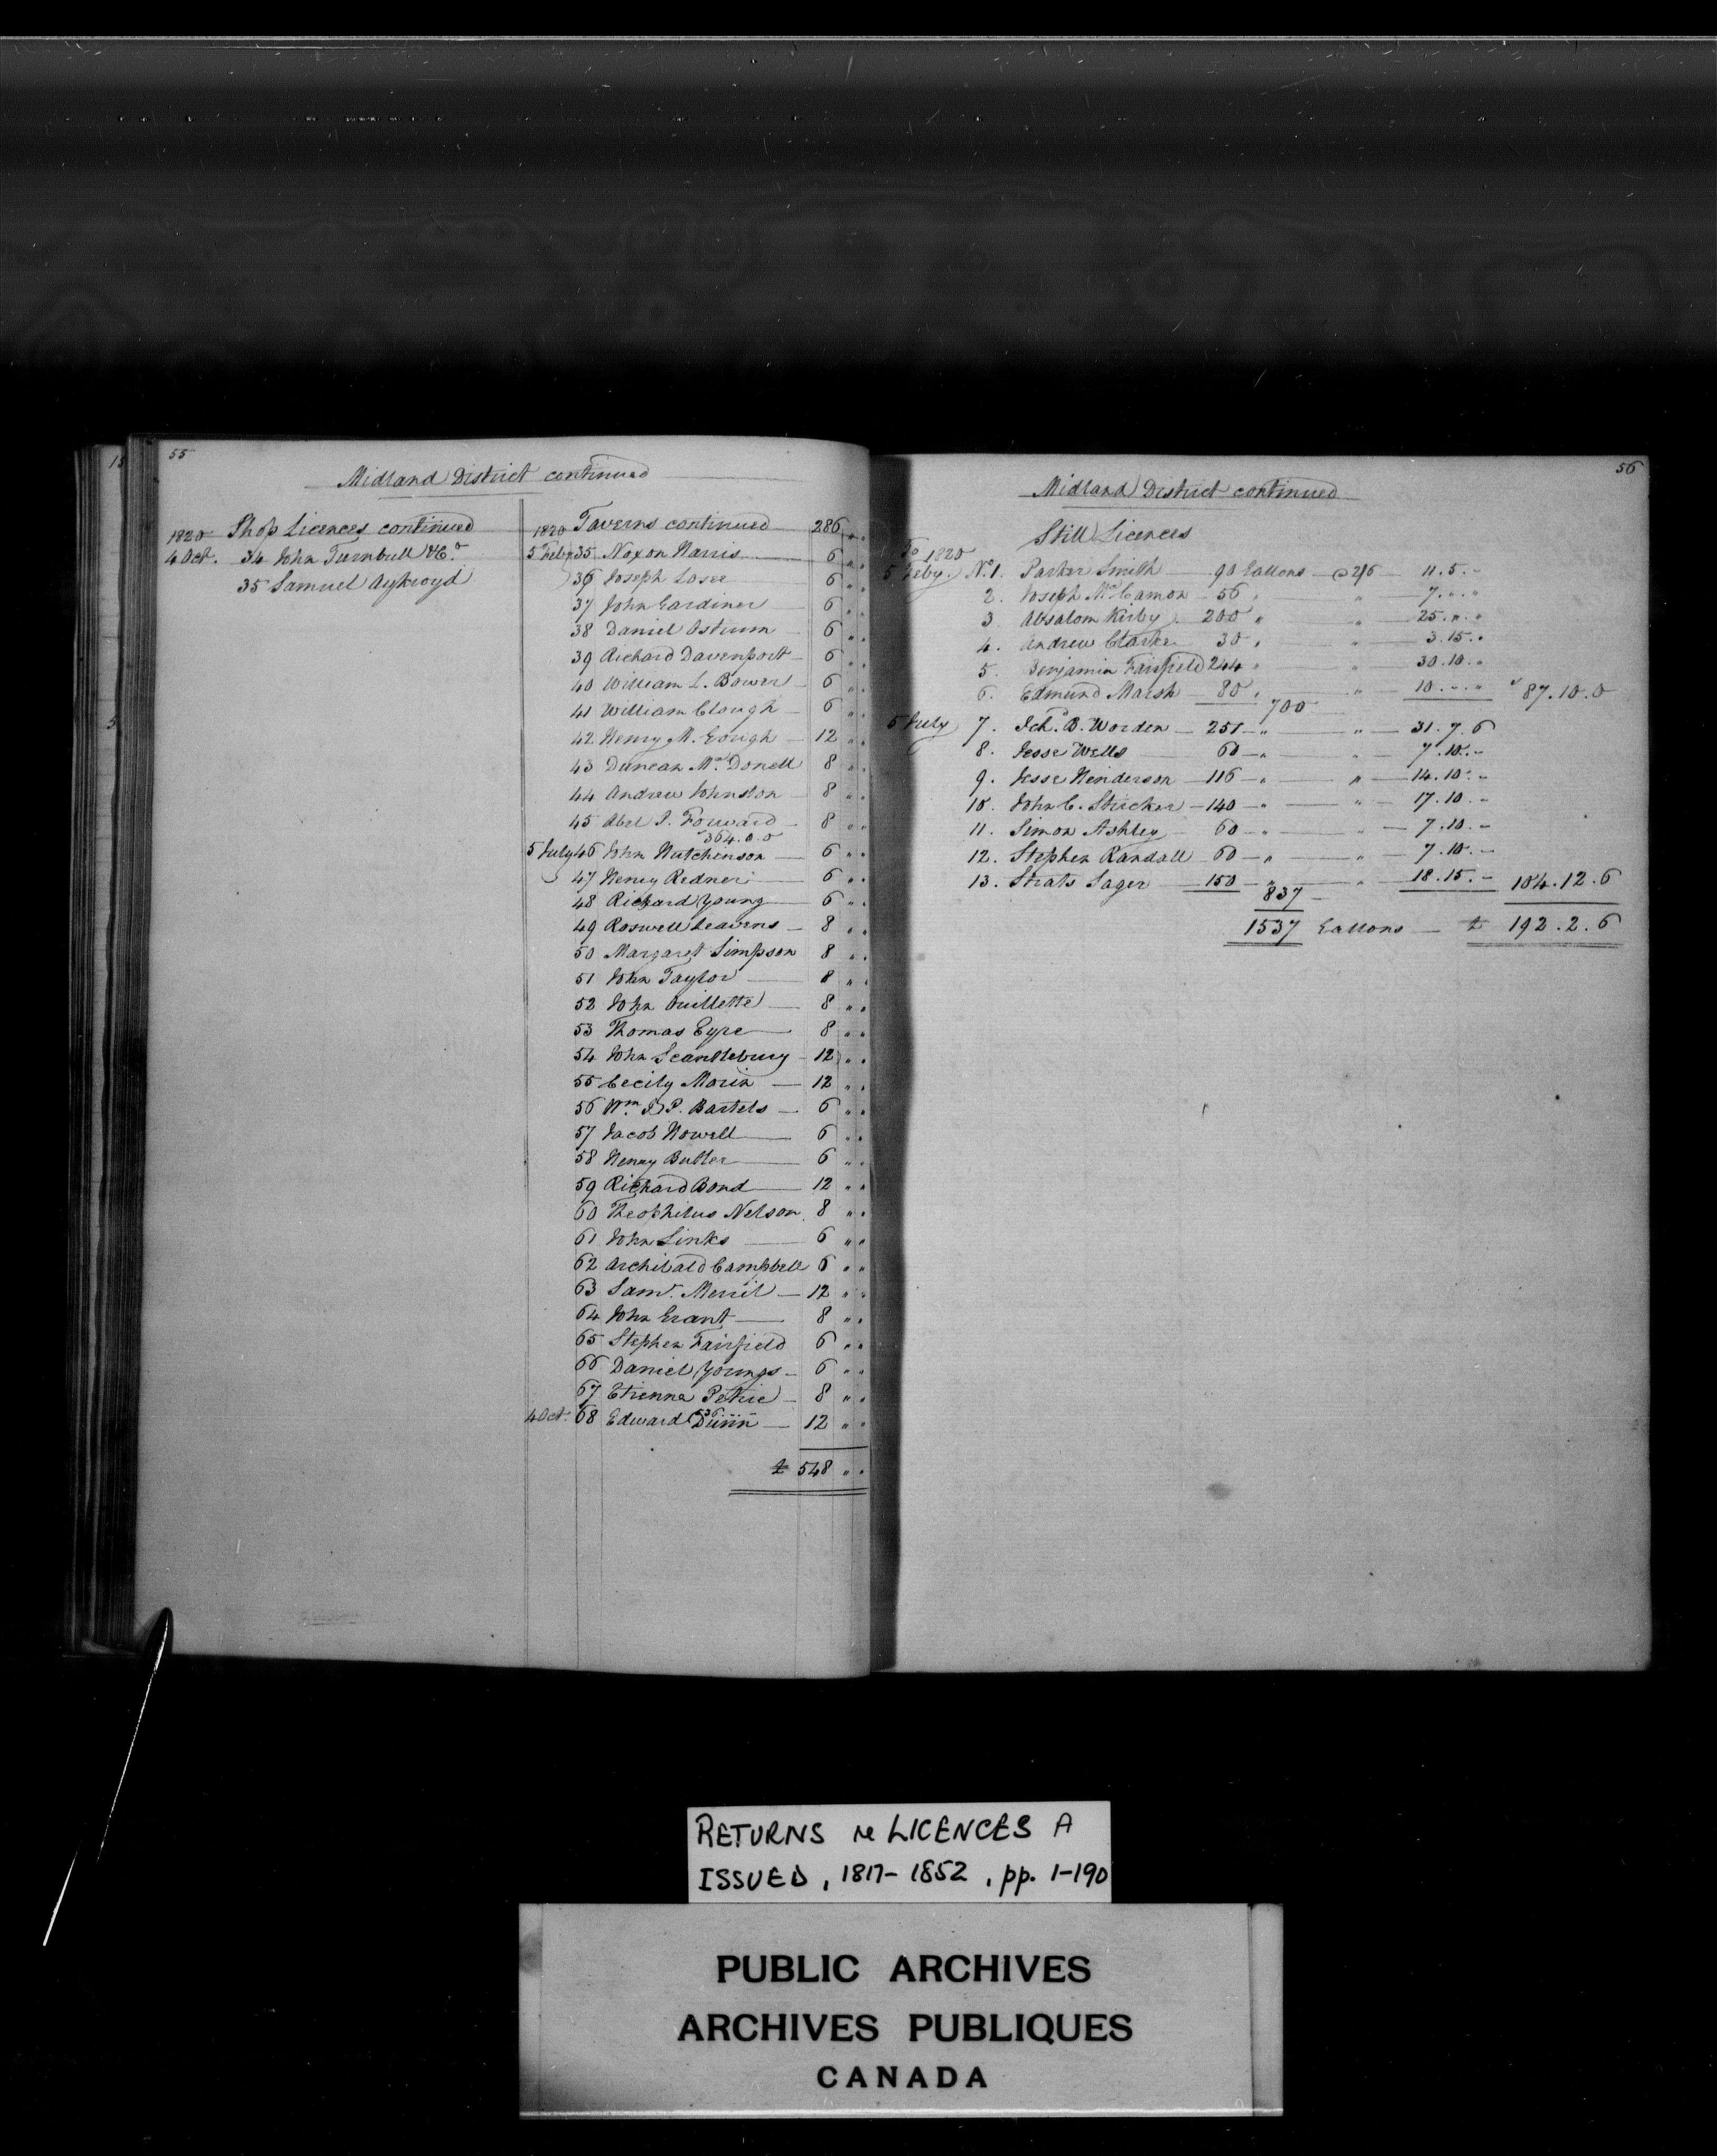 55
Midland District continued
1820 Shop Licences continued
4 Oct. 34 John Turnbull & Co.
35 Samuel Aykroyd
1820 Taverns continued 286 " "
5 Feby 35 Noxon Harris 6 " "
36 Joseph Losee 6 " "
37 John Gardiner 6 " "
38 Daniel Ostrum 6 " "
39 Richard Davenport 6 " "
40 William L. Bower 6 " "
41 William Clough 6 " "
42 Henry M. Gough 12 " "
43 Duncan McDonell 8 " "
44 Andrew Johnston 8 " "
45 Abel P. Forward 8 " "
364.0.0
5 July 46 John Hutchinson 6 " "
47 Henry Redner 6 " "
48 Richard Young 6 " "
49 Roswell Leavens 8 " "
50 Margaret Simpson 8 " "
51 John Taylor 8 " "
52 John Ouillette 8 " "
53 Thomas Eyre 8 " "
54 John Scantlebury 12 " "
55 Cecily Morin 12 " "
56 Wm. J. P. Bartels 6 " "
57 Jacob Howell 6 " "
58 Henry Butler 6 " "
59 Richard Bond 12 " "
60 Theophilus Nelson 8 " "
61 John Links 6 " "
62 Archibald Campbell 6 " "
63 Saml. Merril 12 " "
64 John Grant 8 " "
65 Stephen Fairfield 6 " "
66 Daniel Youngs 6 " "
67 Etienne Petrie 8 " "
536
4 Oct. 68 Edward Dunn 12 " "
£ 548 " "
56
Midland District continued
Still Licences
To 1820
5 Feby. No. 1. Parker Smith 90 Gallons @ 2/6 11.5.-
2. Joseph McCamon 56 " " 7.".”
3. Absalom Kirby 200 " " 25.".”
4. Andrew Clarke 30 " " 3.15."
5. Benjamin Fairfield 244 " " 30.10."
6. Edmund Marsh 80 " " 10.".” 87.10.0
700
5 July 7. Ichd. B. Worden 251 " " 31.7.6
8. Jesse Wells 60 " " 7.10.-
9. Jesse Henderson 116 " " 14.10.-
10. John C. Stricker 140 " " 17.10.-
11. Simon Ashley 60 " " 7.10.-
12. Stephen Randall 60 " " 7.10.-
13. Strats Sager 150 " " 18.15.- 104.12.6
837
1537 Gallons £ 192.2.6
RETURNS re LICENCES A
ISSUED, 1817-1852, pp. 1-190
PUBLIC ARCHIVES
ARCHIVES PUBLIQUES
CANADA